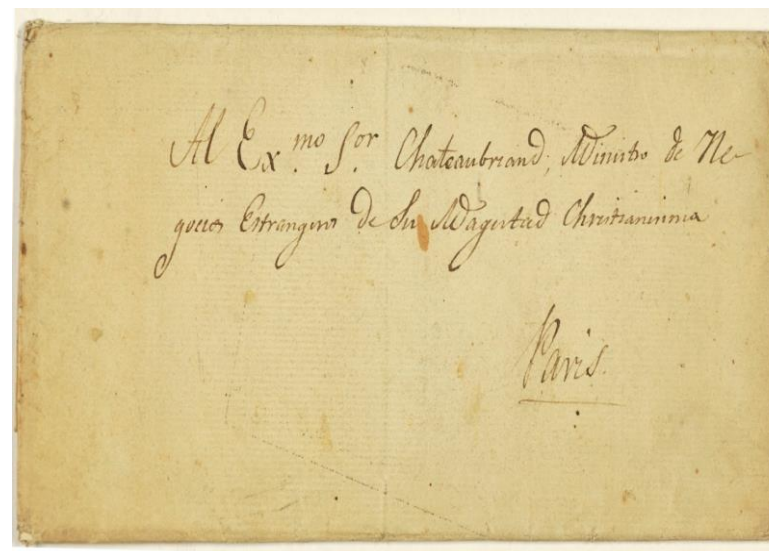 Al Ex.mo S.or Chateaubriand, Ministro de Ne-
gocios Estrangeros de Su Magestad Christianisima
Paris.